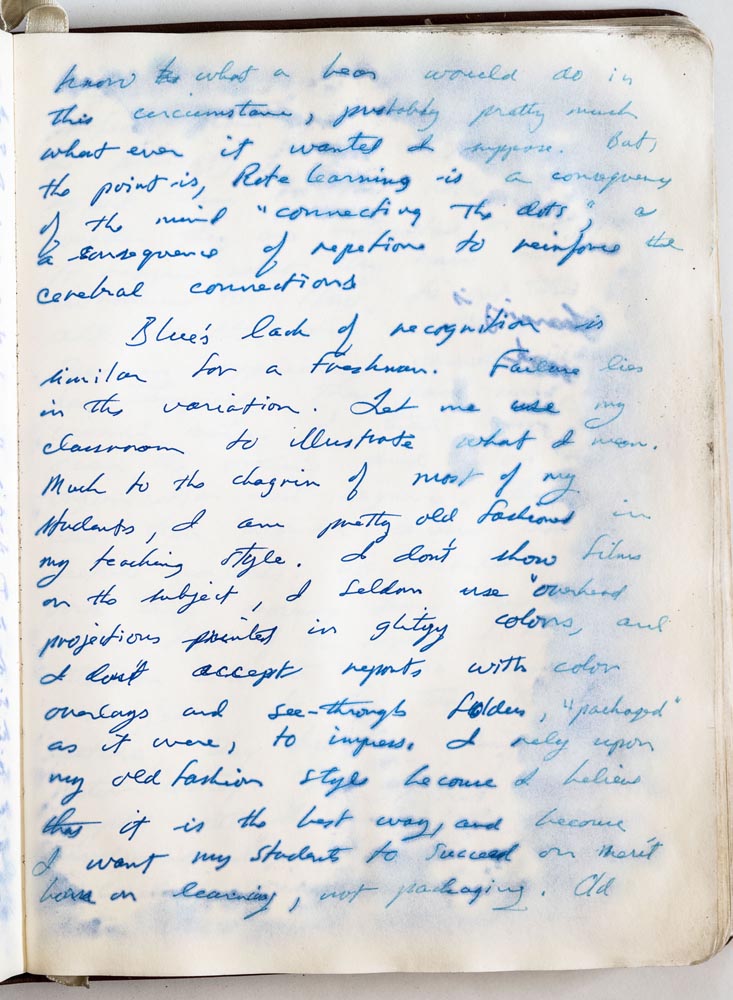 know what a bear would do in
this circumstance, probably pretty much
what ever it wanted I suppose. But,
the point is, Rote learning is a consequence
of the mind "connecting the dots", a
a consequence of repetions to reinforce the
cerebral connections
Blue's lack of recognition is
similar for a Freshman. Failure lies
in the variation. Let me use my
classroom to illustrate what I mean.
Much to the chagrin of most of my
students, I am pretty old fashioned in
my teaching style. I don't show films
on the subject, I seldom use "overhead
projections printed in glitzy colors, and
I don't accept reports with color
overlays and see-through folders, "packaged"
as it were, to impress. I rely upon
my old fashion style because I believe
that it is the best way, and because
I want my students to succeed on merit
born on learning, not packaging. Old